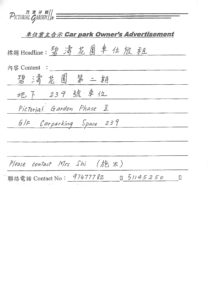 碧濤花園
PICTORIAL GARDEN II
車位業主告示 Car park Owner's Advertisement
標題 Headline : 碧濤花園車位放租
內容 Content :
碧濤花園第二期
地下 239 號車位
Pictorial Garden Phase II
G/F Carparking Space 239
Please contact Mrs. Shi (施太)
聯絡電話 Contact No.: 97677782 或 51145250